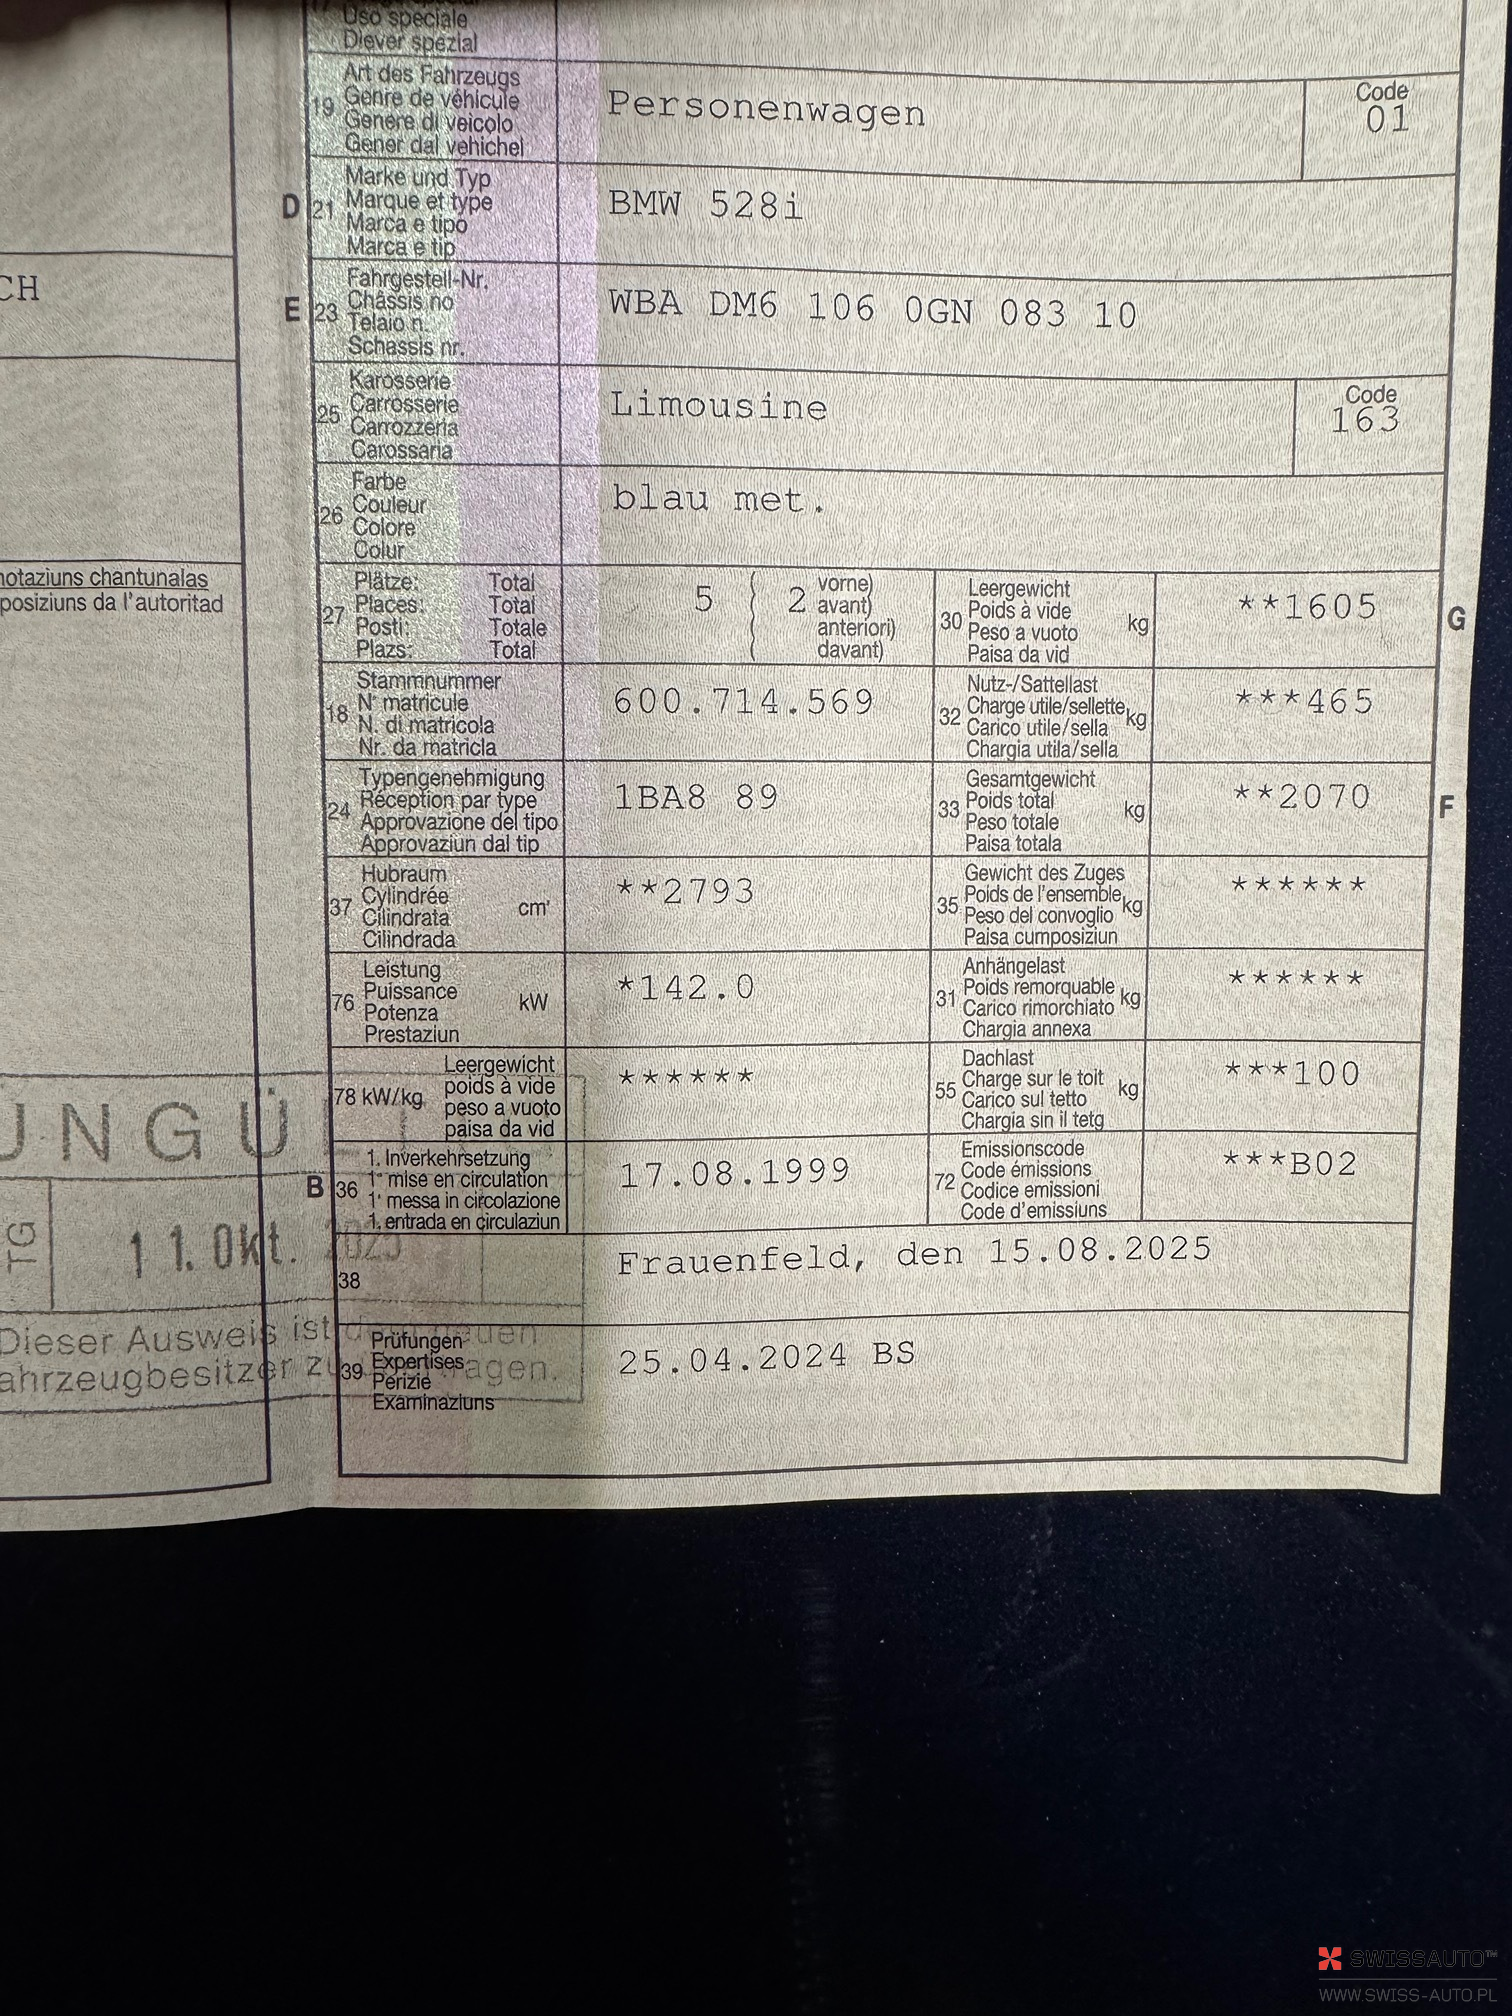 Uso speciale
Diever spezial
19 Art des Fahrzeugs
Genre de véhicule
Genere di veicolo
Gener dal vehichel
Personenwagen
Code
01
D 21 Marke und Typ
Marque et type
Marca e tipo
Marca e tip
BMW 528i
CH
E 23 Fahrgestell-Nr.
Châssis no
Telaio n.
Schassis nr.
WBA DM6 106 0GN 083 10
25 Karosserie
Carrosserie
Carrozzeria
Carossaria
Limousine
Code
163
26 Farbe
Couleur
Colore
Colur
blau met.
notaziuns chantunalas
posiziuns da l'autoritad
27 Plätze: Total
Places: Total
Posti: Totale
Plazs: Total
5 2 vorne)
avant)
anteriori)
davant)
30 Leergewicht
Poids à vide
Peso a vuoto
Paisa da vid
kg
**1605
G
18 Stammnummer
N° matricule
N. di matricola
Nr. da matricla
600.714.569
32 Nutz-/Sattellast
Charge utile/sellette
Carico utile/sella
Chargia utila/sella
kg
***465
24 Typengenehmigung
Réception par type
Approvazione del tipo
Approvaziun dal tip
1BA8 89
33 Gesamtgewicht
Poids total
Peso totale
Paisa totala
kg
**2070
F
37 Hubraum
Cylindrée
Cilindrata
Cilindrada
cm³
**2793
35 Gewicht des Zuges
Poids de l'ensemble
Peso del convoglio
Paisa cumposiziun
kg
******
76 Leistung
Puissance
Potenza
Prestaziun
kW
*142.0
31 Anhängelast
Poids remorquable
Carico rimorchiato
Chargia annexa
kg
******
78 kW/kg Leergewicht
poids à vide
peso a vuoto
paisa da vid
******
55 Dachlast
Charge sur le toit
Carico sul tetto
Chargia sin il tetg
kg
***100
UNGÜ
B 36 1. Inverkehrsetzung
1° mise en circulation
1ª messa in circolazione
1. entrada en circulaziun
17.08.1999
72 Emissionscode
Code émissions
Codice emissioni
Code d'emissiuns
***B02
TG
11. Okt. 2025
38
Frauenfeld, den 15.08.2025
Dieser Ausweis ist dem neuen
ahrzeugbesitzer
39 Prüfungen
Expertises
Perizie
Examinaziuns
25.04.2024 BS
SWISSAUTO™
WWW.SWISS-AUTO.PL